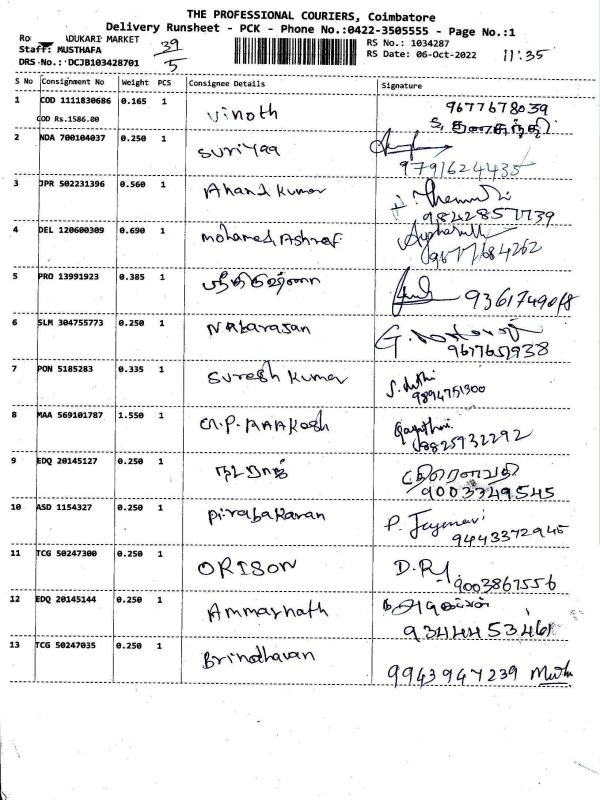 THE PROFESSIONAL COURIERS, Coimbatore
Delivery Runsheet - PCK - Phone No.:0422-3505555 - Page No.:1
ADUKARI MARKET
39
RS No.: 1034287
Staff: MUSTHAFA
RS Date: 06-Oct-2022
11:35
DRS No.: DCJB103428701
5
S No Consignment No Weight PCS Consignee Details Signature
1 COD 1111830686 0.165 1 Vinoth 9677678039
COD Rs.1586.00 S,
2 NDA 700104037 0.250 1 Suriyaa
9791624435
3 JPR 502231396 0.560 1 Anand Kumar
9842857739
4 DEL 120600309 0.690 1 Mohamed Ashraf
9677684262
5 PRO 13991923 0.385 1 ஸ்ரீகிருஷ்ணா
6 SLM 304755773 0.250 1 Natarajan G.
7 PON 5185283 0.335 1 Suresh Kumar
9894751300
8 MAA 569101787 1.550 1
8825932292
9 EDQ 20145127 0.250 1 நடராஜ்
9003349545
10 ASD 1154327 0.250 1 Pirabakaran P.
9443372945
11 TCG 50247300 0.250 1 ORISON
9003867556
12 EDQ 20145144 0.250 1 Ammarnath
9344453461
13 TCG 50247035 0.250 1 Brindhavan
9943947239